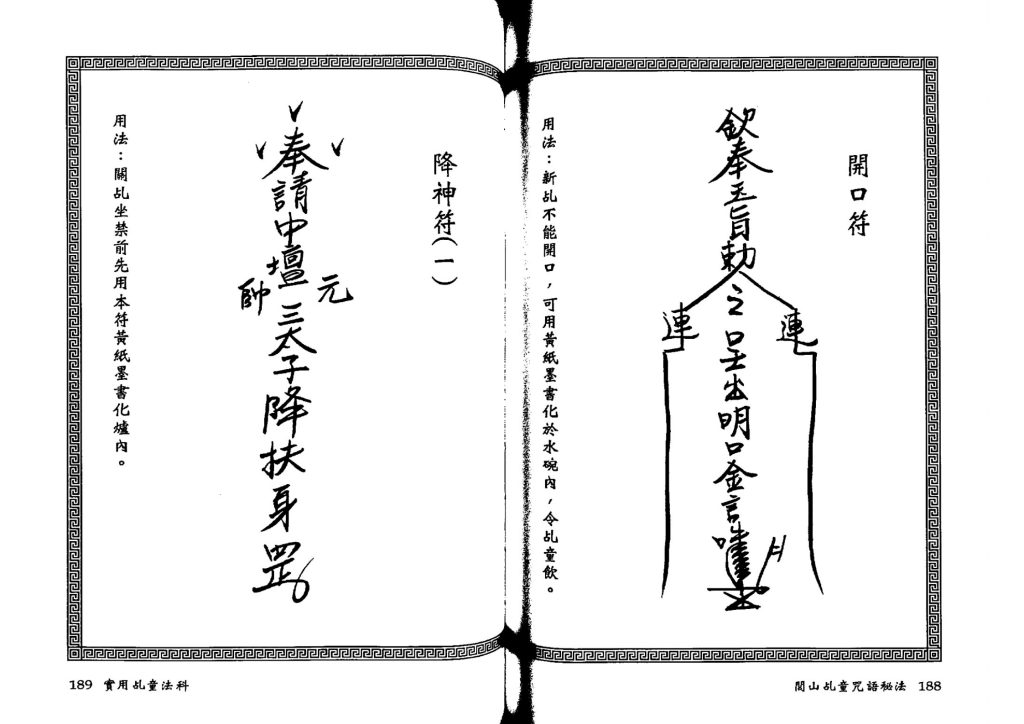 開口符
欽奉玉旨勅
之口
連
連
出明口金言
用法：新乩不能開口，可用黃紙墨書化於水碗內，令乩童飲。
閭山乩童咒語秘法 188
降神符(一)
奉請中壇三太子降扶身罡
元
帥
用法：關乩坐禁前先用本符黃紙墨書化爐內。
189 實用乩童法科